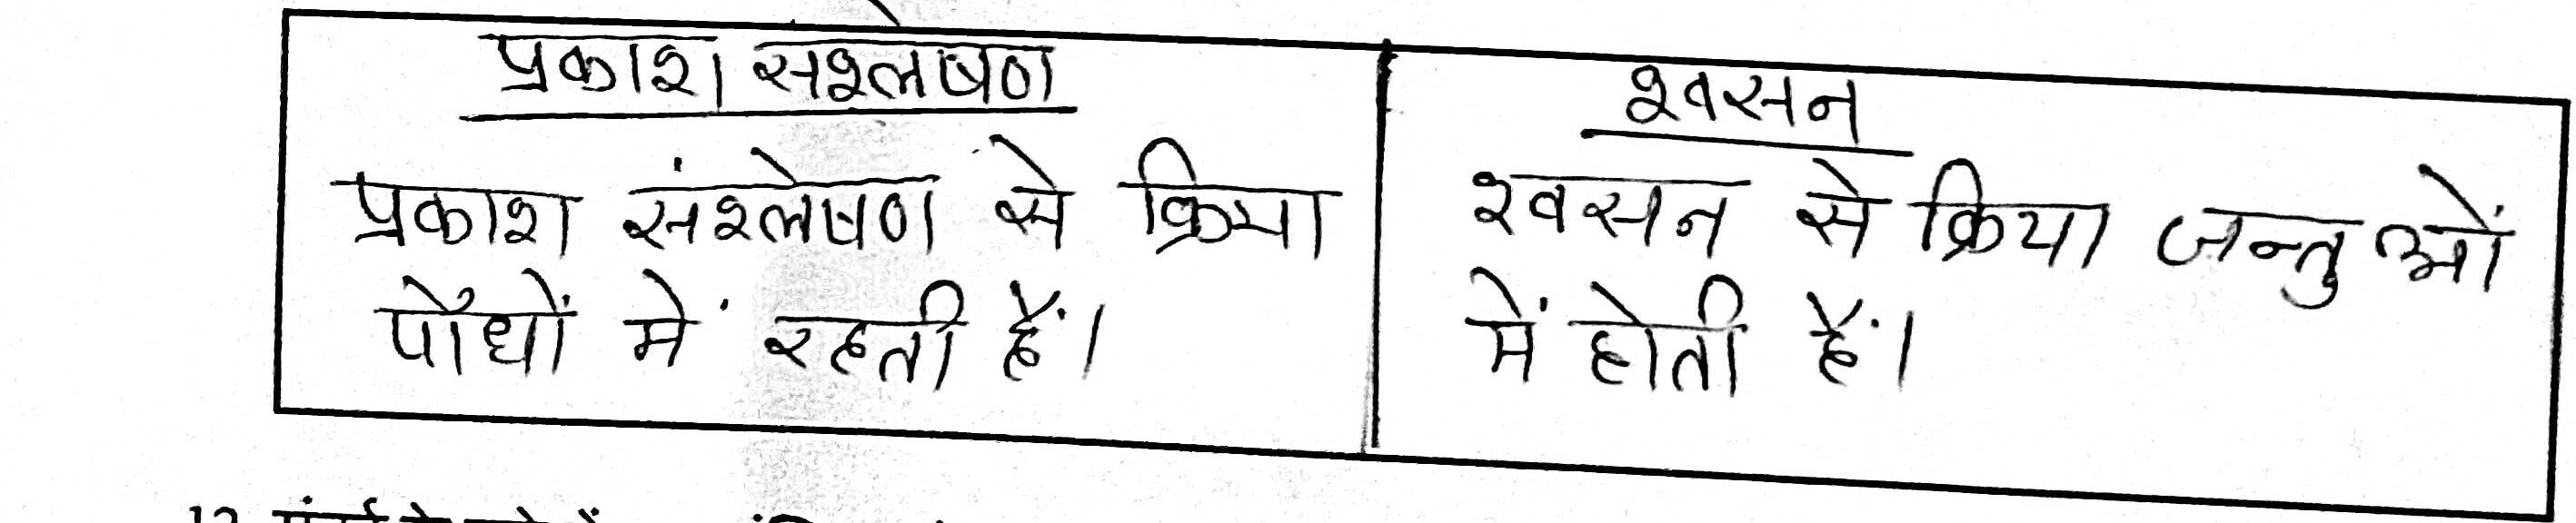 प्रकाश संश्लेषण
श्वसन
प्रकाश संश्लेषण से क्रिया
पौधों में रहती हैं।
श्वसन से क्रिया जन्तुओं
में होती हैं।